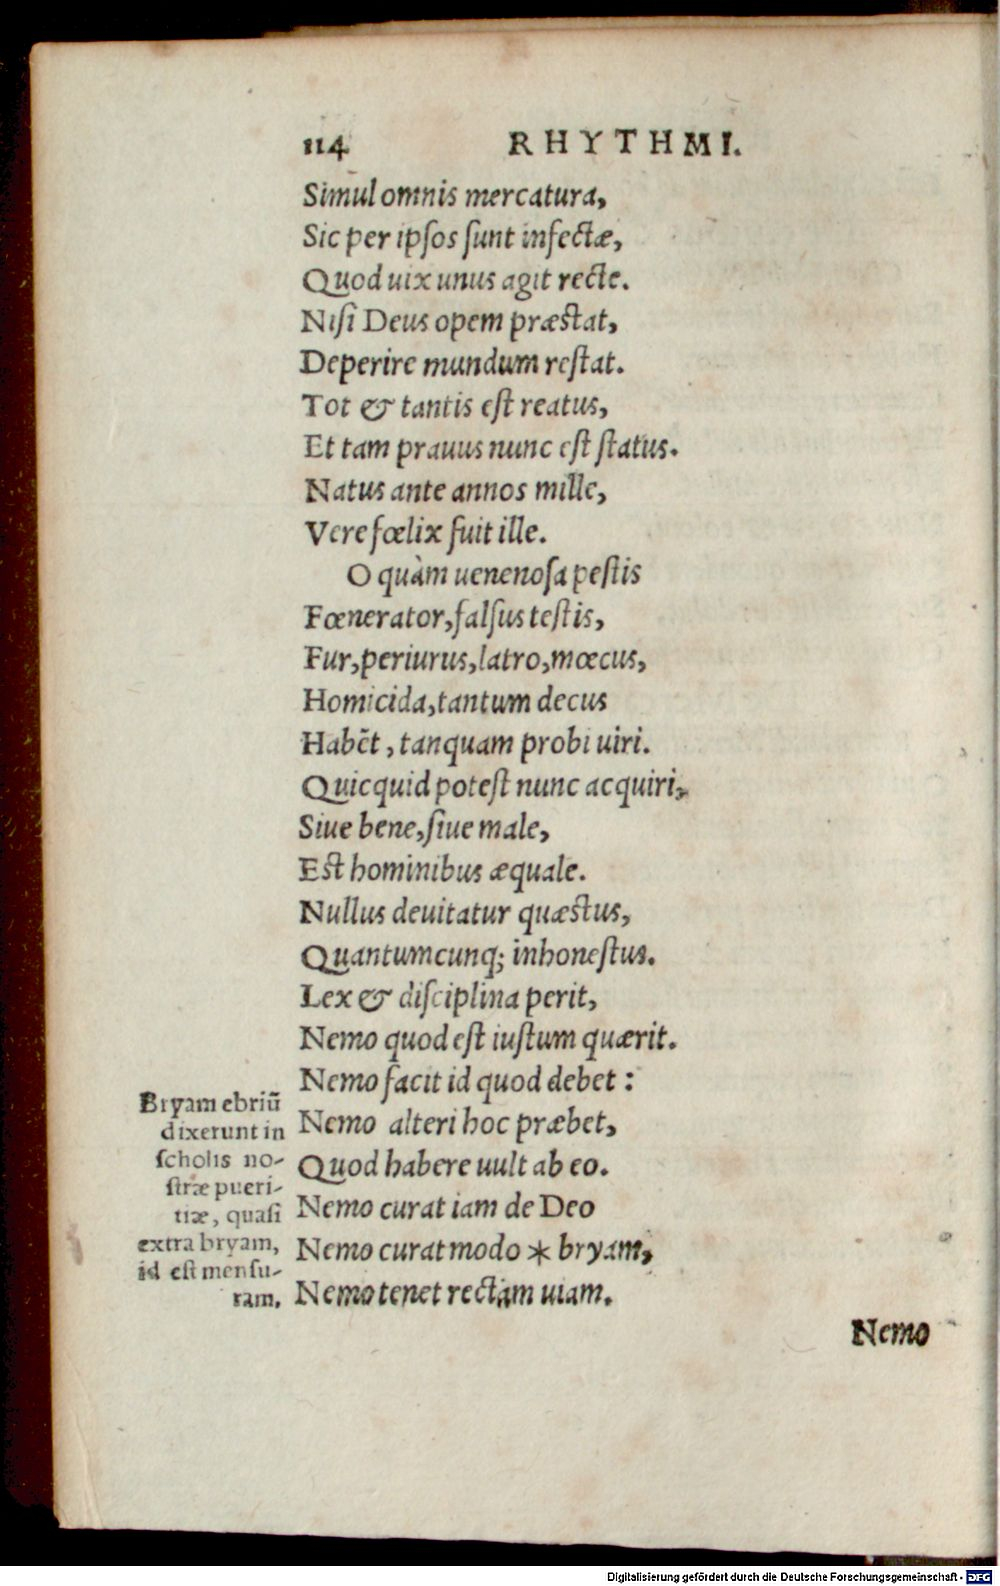 114 RHYTHMI.
Simul omnis mercatura,
Sic per ipſos ſunt infectæ,
Quod uix unus agit recte.
Niſi Deus opem præſtat,
Deperire mundum reſtat.
Tot & tantis eſt reatus,
Et tam prauus nunc eſt ſtatus.
Natus ante annos mille,
Vere fœlix fuit ille.
O quàm uenenoſa peſtis
Fœnerator, falſus teſtis,
Fur, periurus, latro, mœcus,
Homicida, tantum decus
Habẽt, tanquam probi uiri.
Quicquid poteſt nunc acquiri,
Siue bene, ſiue male,
Eſt hominibus æquale.
Nullus deuitatur quæſtus,
Quantumcunq; inhoneſtus.
Lex & diſciplina perit,
Nemo quod eſt iuſtum quærit.
Nemo facit id quod debet:
Nemo alteri hoc præbet,
Quod habere uult ab eo.
Nemo curat iam de Deo
Nemo curat modo * bryam,
Nemo tenet rectam uiam.
Bryam ebriũ
dixerunt in
ſcholis no-
ſtræ pueri-
tiæ, quaſi
extra bryam,
id eſt menſu-
ram.
Nemo
Digitalisierung gefördert durch die Deutsche Forschungsgemeinschaft - DFG